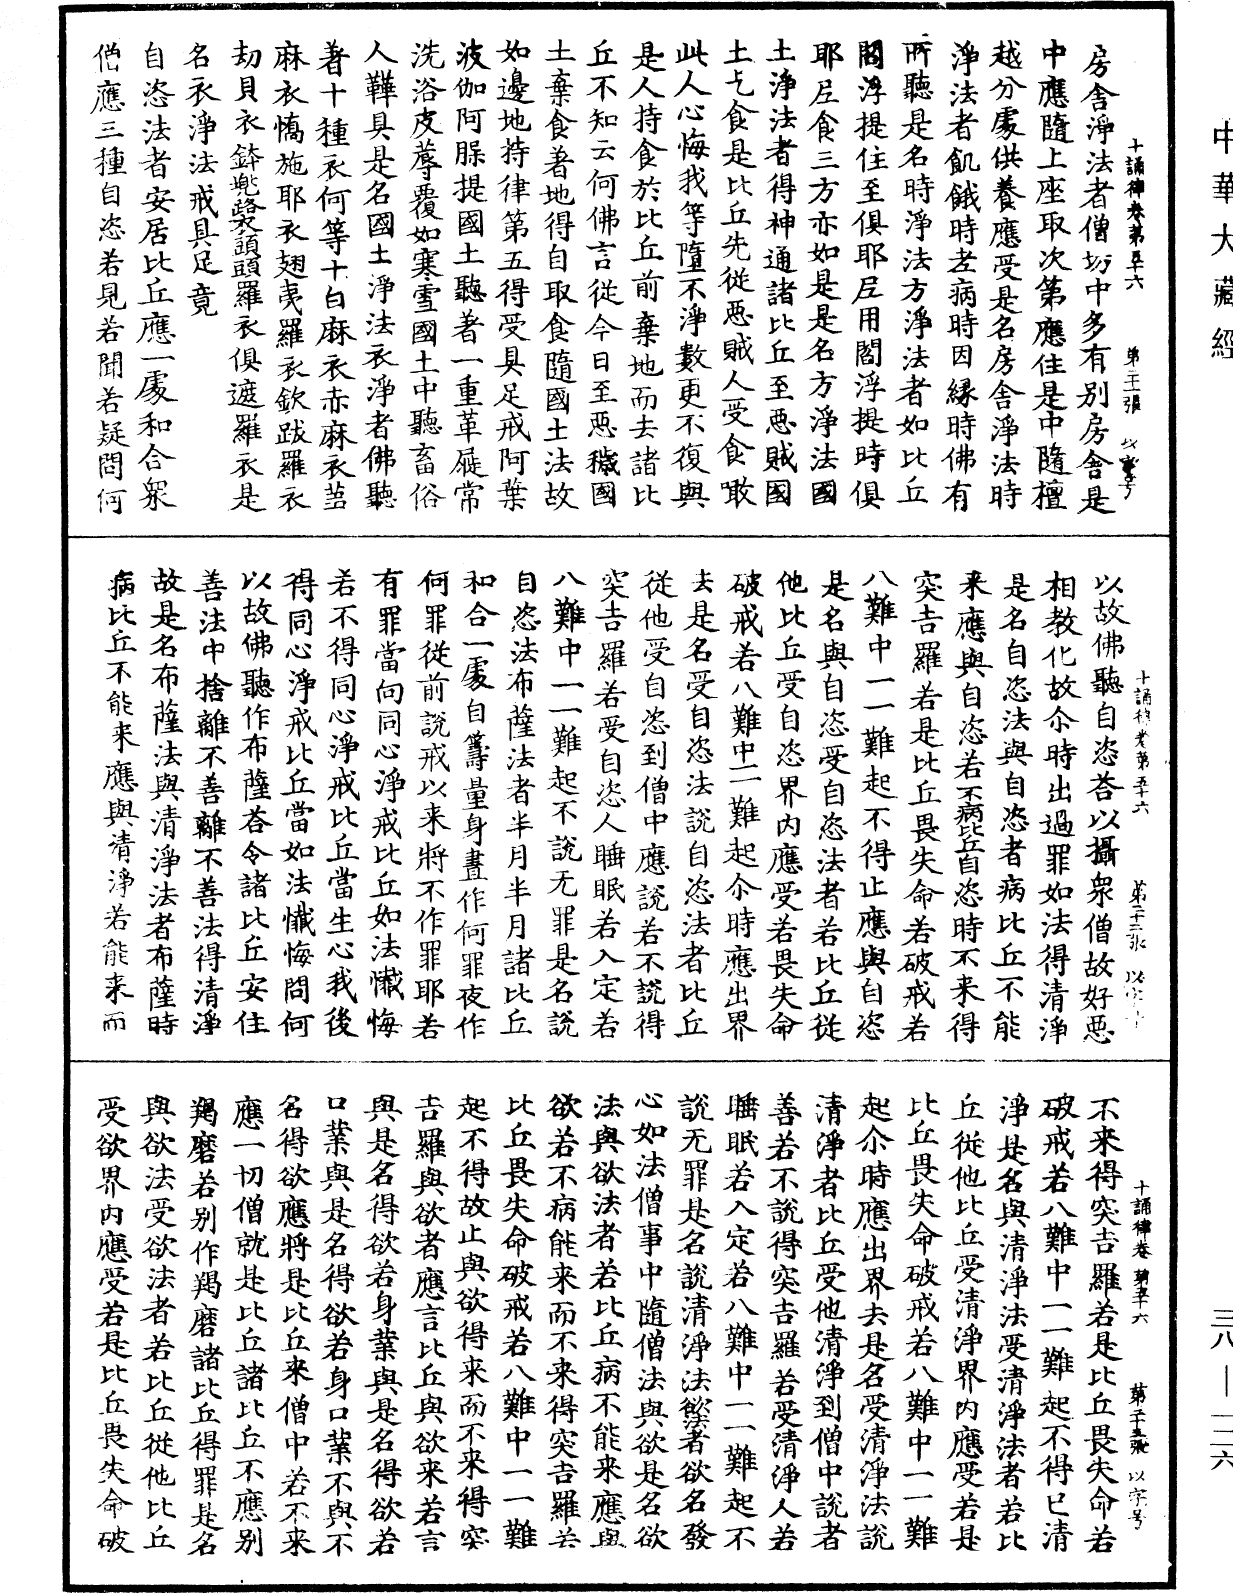 中華大藏經
十誦律卷第五十六　第二十二張　以字号
房舍淨法者僧坊中多有別房舍是
中應隨上座取次第應住是中隨檀
越分處供養應受是名房舍淨法時
淨法者飢餓時老病時因緣時佛有
所聽是名時淨法方淨法者如比丘
閻浮提住至俱耶尼用閻浮提時俱
耶尼食三方亦如是是名方淨法國
土淨法者得神通諸比丘至惡賊國
土乞食是比丘先從惡賊人受食噉
此人心悔我等墮不淨數更不復與
是人持食於比丘前棄地而去諸比
丘不知云何佛言從今日至惡穢國
土棄食著地得自取食隨國土法故
如邊地持律第五得受具足戒阿葉
波伽阿脲提國土聽著一重革屣常
洗浴皮蓐覆如寒雪國土中聽畜俗
人鞾具是名國土淨法衣淨者佛聽
著十種衣何等十白麻衣赤麻衣芻
麻衣憍施耶衣翅夷羅衣欽跋羅衣
劫貝衣鉢兜路衣頭頭羅衣俱遮羅衣是
名衣淨法戒具足竟
自恣法者安居比丘應一處和合衆
僧應三種自恣若見若聞若疑問何
十誦律卷第五十六　第二十三張
以故佛聽自恣荅以攝衆僧故好惡
相教化故尒時出過罪如法得清淨
是名自恣法與自恣者病比丘不能
来應與自恣若不病比丘自恣時不来得
突吉羅若是比丘畏失命若破戒若
八難中一一難起不得止應與自恣
是名與自恣受自恣法者若比丘從
他比丘受自恣界内應受若畏失命
破戒若八難中一一難起尒時應出界
去是名受自恣法說自恣法者比丘
從他受自恣到僧中應說若不說得
突吉羅若受自恣人睡眠若入定若
八難中一一難起不說无罪是名說
自恣法布薩法者半月半月諸比丘
和合一處自籌量身晝作何罪夜作
何罪從前說戒以来將不作罪耶若
有罪當向同心淨戒比丘如法懺悔
若不得同心淨戒比丘當生心我後
得同心淨戒比丘當如法懺悔問何
以故佛聽作布薩荅令諸比丘安住
善法中捨離不善離不善法得清淨
故是名布薩法與清淨法者布薩時
病比丘不能来應與清淨若能来而
十誦律卷第五十六　以字号
不来得突吉羅若是比丘畏失命若
破戒若八難中一一難起不得已清
淨是名與清淨法受清淨法者若比
丘從他比丘受清淨界内應受若是
比丘畏失命破戒若八難中一一難
起尒時應出界去是名受清淨法說
清淨者比丘受他清淨到僧中說者
善若不說得突吉羅若受清淨人若
睡眠若入定若八難中一一難起不
說无罪是名說清淨法欲法者欲名發
心如法僧事中隨僧法與欲是名欲
法與欲法者若比丘病不能来應與
欲若不病能来而不来得突吉羅若
比丘畏失命破戒若八難中一一難
起不得故止與欲得来而不来得突
吉羅與欲者應言比丘與欲来若言
與是名得欲若身業與是名得欲若
口業與是名得欲若身口業不與不
名得欲應將是比丘来僧中若不来
應一切僧就是比丘諸比丘不應別
羯磨若別作羯磨諸比丘得罪是名
與欲法受欲法者若比丘從他比丘
受欲界内應受若是比丘畏失命破
三八—一二六